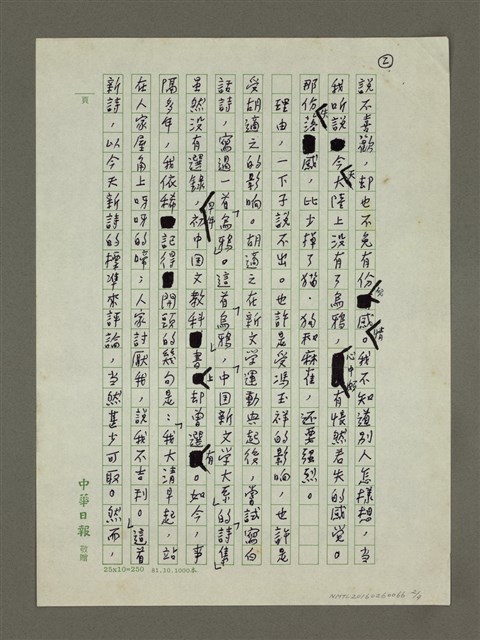 ②
說不喜歡,却也不免有份感情。我不知道別人怎樣想,當
我听說今天大陸上没有了烏鴉,心中好有悵然若失的感觉。
那份失落感,比少掉了猫、狗和麻雀,还要强烈。
理由,一下子說不出。也許是受馮玉祥的影响,也許是
受胡適之的影响。胡適之在新文学運動興起後,嘗試寫白
話詩,寫過一首「烏鴉」。這首「烏鴉」,「中国新文学大系的詩集」
虽然没有選錄,早年初中国文教科書上却曾選有。如今,事
隔多年,我依稀記得開頭的幾句是:「我大清早起,站
在人家屋角上呀呀的啼;人家討厭我,說我不吉利。」這首
新詩,以今天新詩的標準來評論,当然甚少可取。然而,
頁
中華日報 敬贈
25x10=250 81.10.1000本
NMTL20160260066 2/4